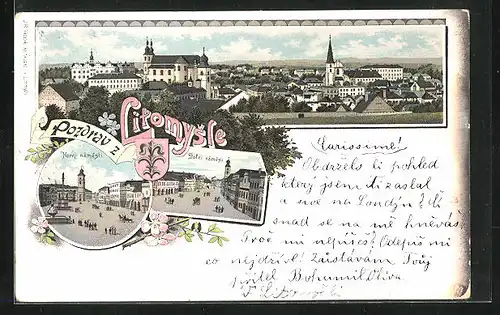 Pozdrav z
Litomyšle
Horní náměstí.
Dolní náměstí
Carissime!
Obdržels li pohled
který jsem ti zaslal
a ne na Londýn? Či
snad se na mě hněváš
Proč mi nepíšeš? Odepiš mi
co nejdříve! Zůstávám Tvůj
přítel Bohumil Oliva